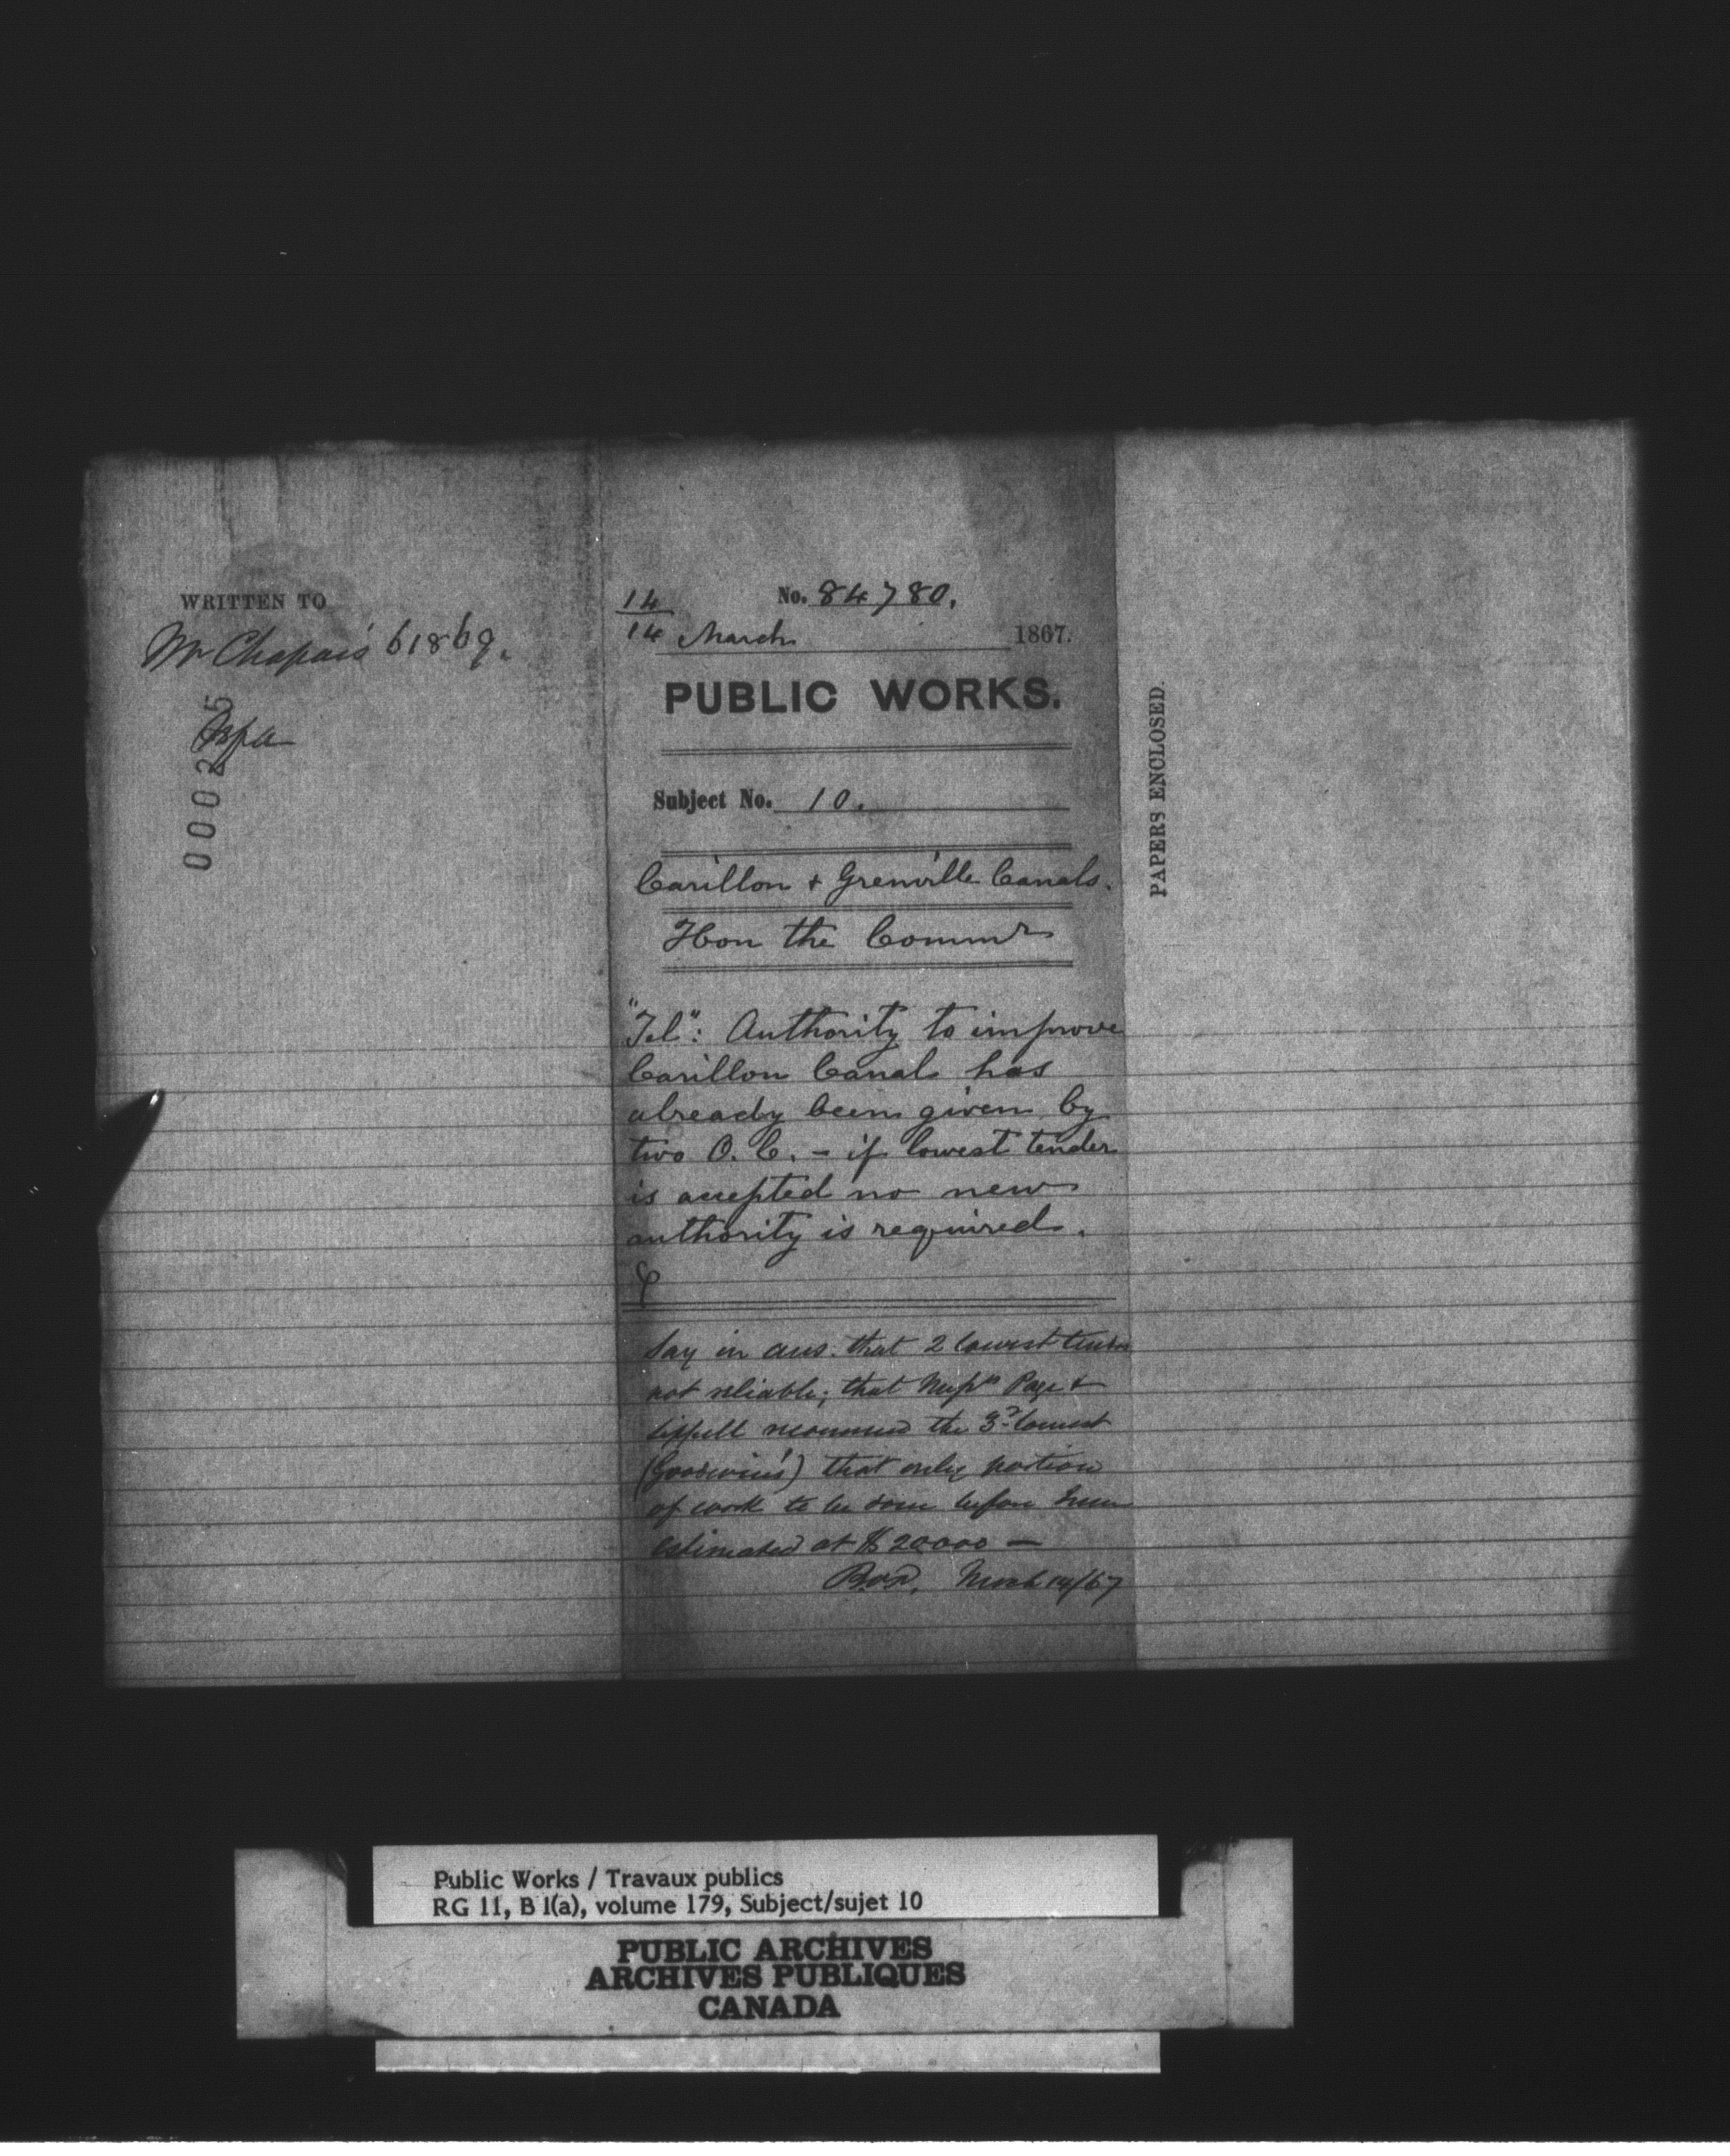 WRITTEN TO
Mr Chapais 61869.
000225
14
14 March 1867.
No. 84780.
PUBLIC WORKS.
Subject No. 10.
Carillon & Grenville Canals.
Hon the Commr
"Tel": Authority to improve
Carillon Canal has
already been given by
two O. C. - if lowest tender
is accepted no new
authority is required.
Say in ans. that 2 lowest
not reliable; that Messrs Page &
Sippell recommend the 3d lowest
(Goodwin's) that only portion
of work to be done before June
estimated at $20000 —
March 14/67
PAPERS ENCLOSED.
Public Works / Travaux publics
RG 11, B 1(a), volume 179, Subject/sujet 10
PUBLIC ARCHIVES
ARCHIVES PUBLIQUES
CANADA